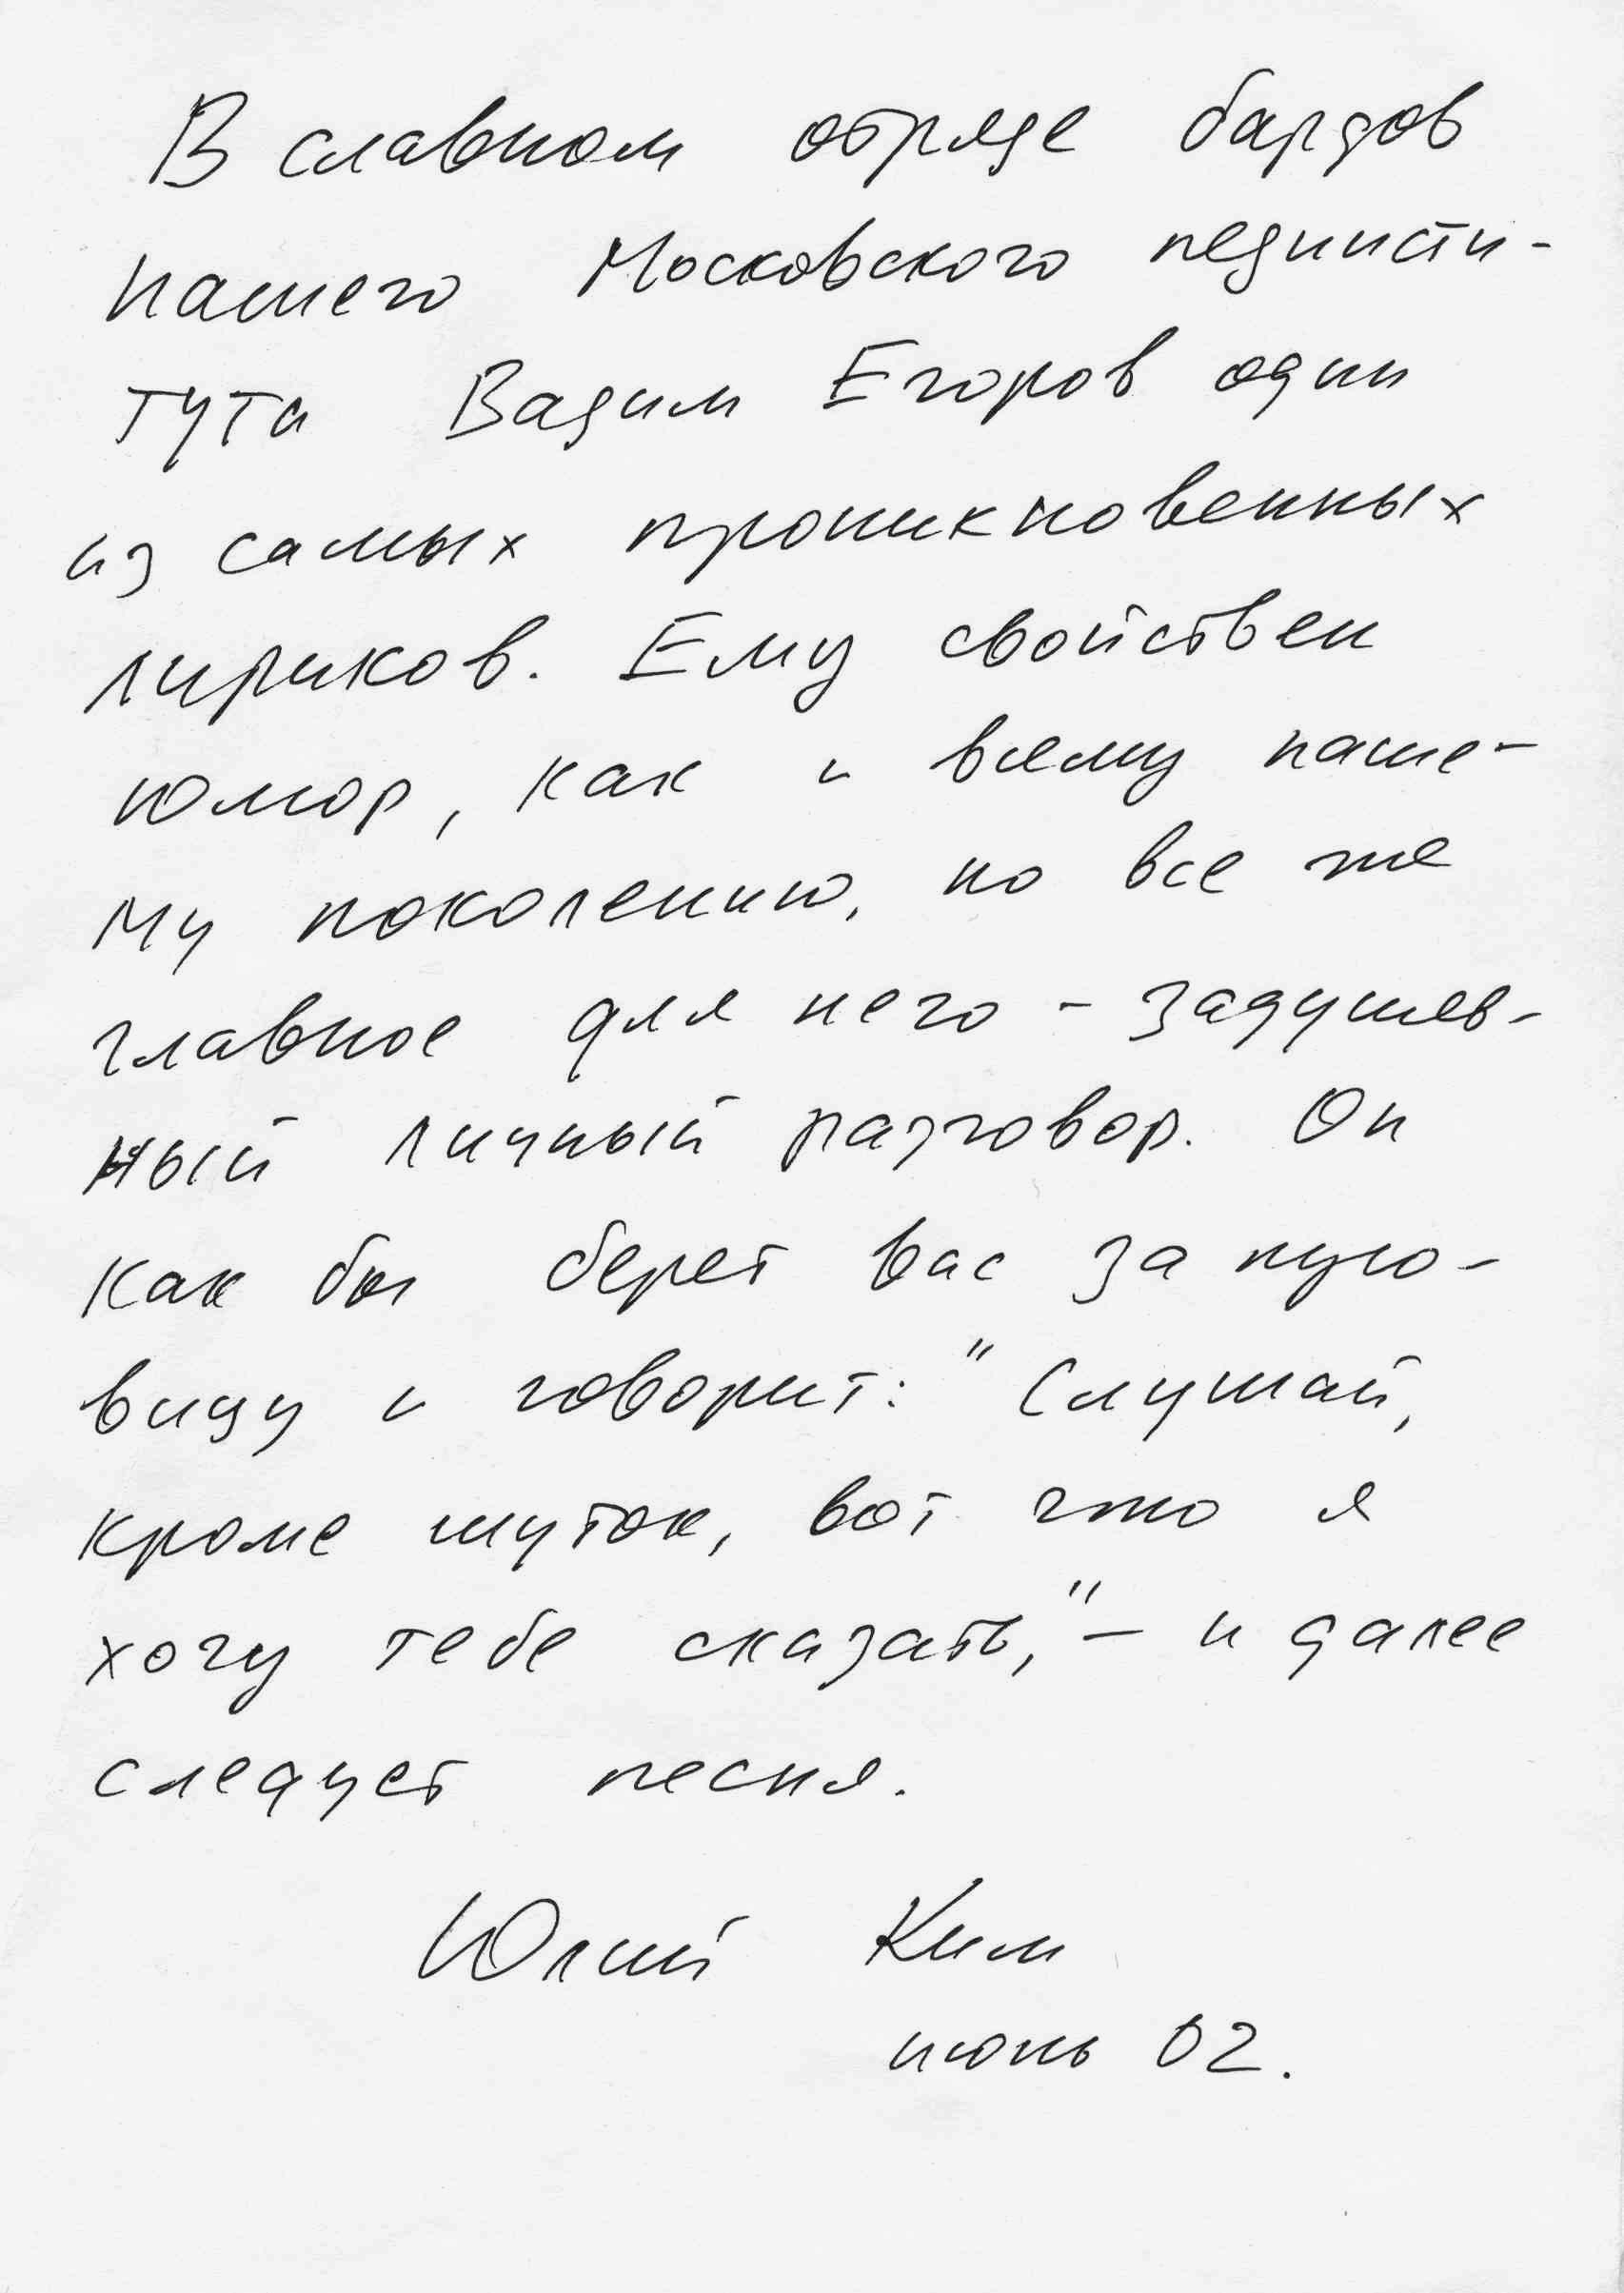 В славном отряде бардов
нашего Московского пединсти-
тута Вадим Егоров один
из самых проникновенных
лириков. Ему свойствен
юмор, как и всему наше-
му поколению, но все же
главное для него - задушев-
ный личный разговор. Он
как бы берет вас за пуго-
вицу и говорит: "Слушай,
кроме шуток, вот что я
хочу тебе сказать," - и далее
следует песня.
Юлий Ким
июнь 02.